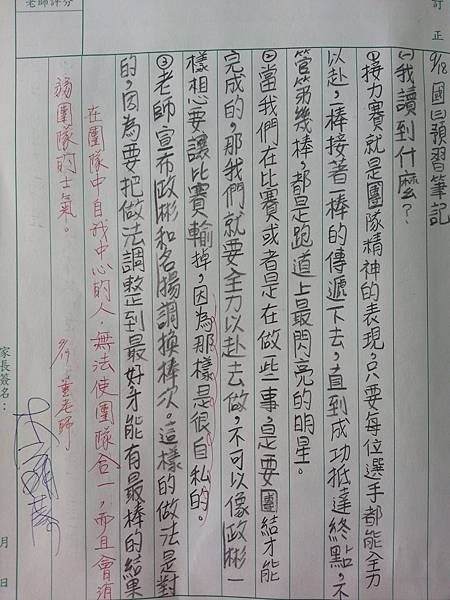 訂正
9/18 國(三)預習筆記
(一)我讀到什麼？
①接力賽就是團隊精神的表現，只要每位選手都能全力
以赴，一棒接著一棒的傳遞下去，直到成功抵達終點，不
管第幾棒，都是跑道上最閃亮的明星。
②當我們在比賽或者是在做些事，是要團結才能
完成的，那我們就要全力以赴去做，不可以像政彬一
樣想要讓比賽輸掉，因為那樣是很自私的。
③老師宣布政彬和名揚調換棒次。這樣的做法是對
的，因為要把做法調整到最好才能有最棒的結果
在團隊中，自我中心的人，無法使團隊合一，而且會消
弱團隊的士氣。
9/19 黃老師
老師評分
家長簽名：
月 日